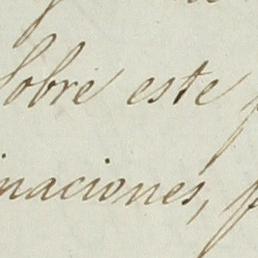 Sobre este
naciones,